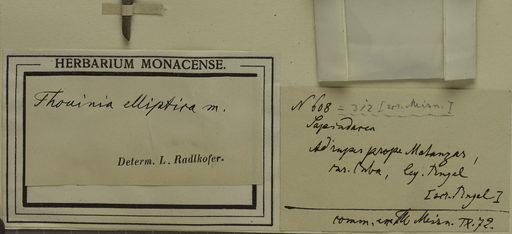 HERBARIUM MONACENSE.
Thouinia elliptica m.
Determ. L. Radlkofer.
N 608 = 312 [
Sapindacea
Ad rupes prope Matanzas,
Cuba, leg. Rugel
Rugel]
comm. Meisn. IX. 72.